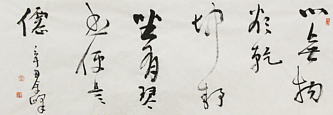 心無物
欲乾
坤静
坐有琴
书便是
僊
辛丑